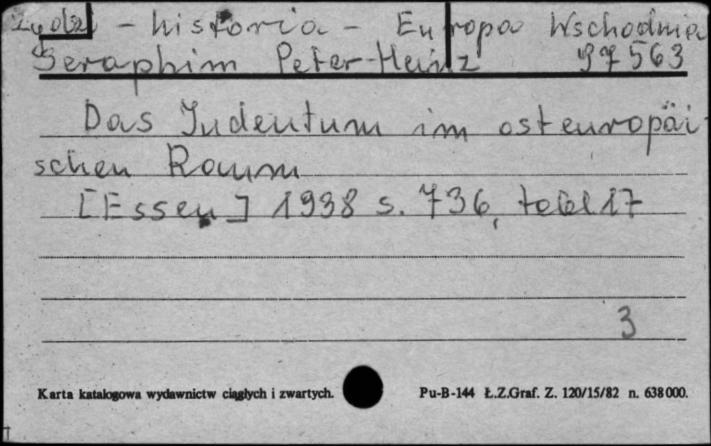 Żydzi - historia - Europa Wschodnia
Seraphim Peter-Heinz 37563
Das Judentum im osteuropäi-
schen Raum
[Essen] 1938 s. 736, tabl 17
3
Karta katalogowa wydawnictw ciągłych i zwartych. Pu-B-144 Ł.Z.Graf. Z. 120/15/82 n. 638000.